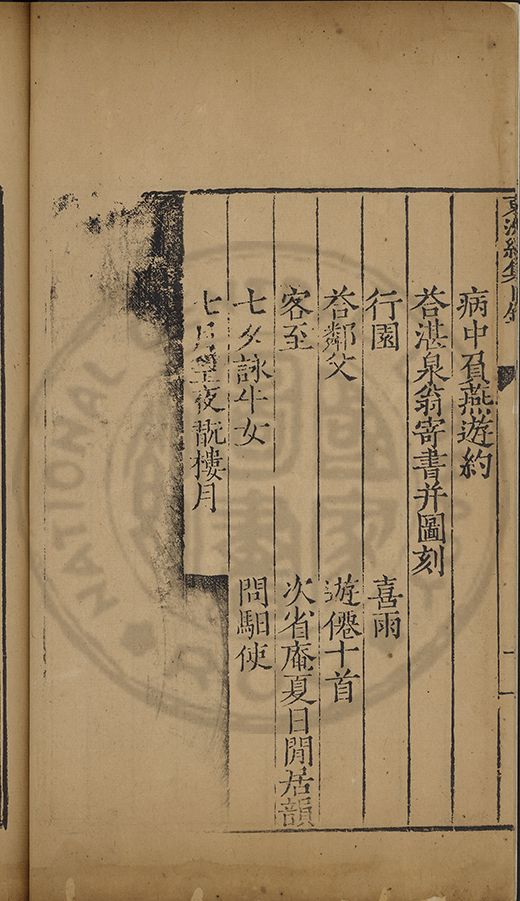 病中負燕遊約
荅湛泉翁寄書并圖刻
行園 喜雨
荅鄰父 遊僊十首
客至 次省庵夏日閒居韻
七夕詠牛女 問馹使
七月望夜翫樓月
集目錄
NATIONAL